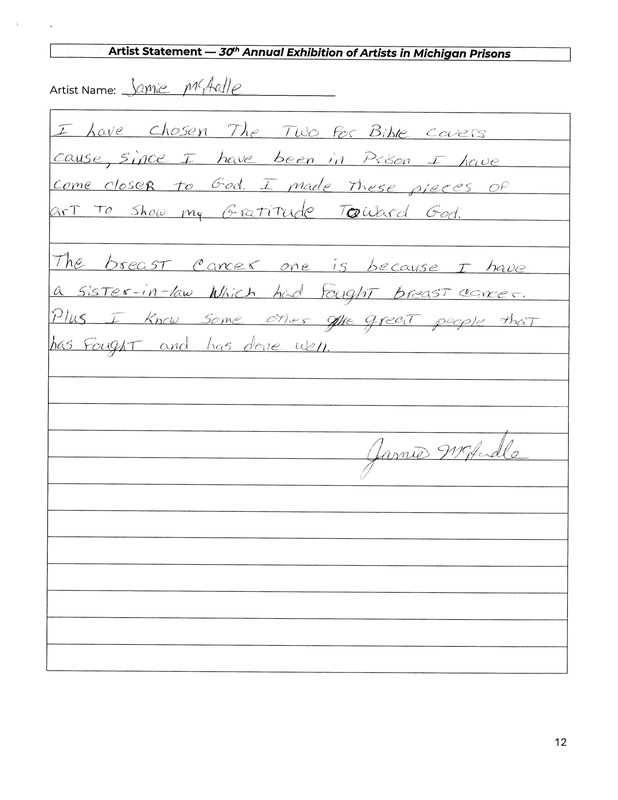 Artist Statement — 30th Annual Exhibition of Artists in Michigan Prisons
Artist Name: Jamie McArdle
I have chosen The Two For Bible covers
cause, since I have been in Prison I have
come closer to God. I made these pieces of
art to show my Gratitude Toward God.
The breast cancer one is because I have
a sister-in-law which had fought breast cancer.
Plus I know some other great people that
has fought and has done well.
Jamie McArdle
12